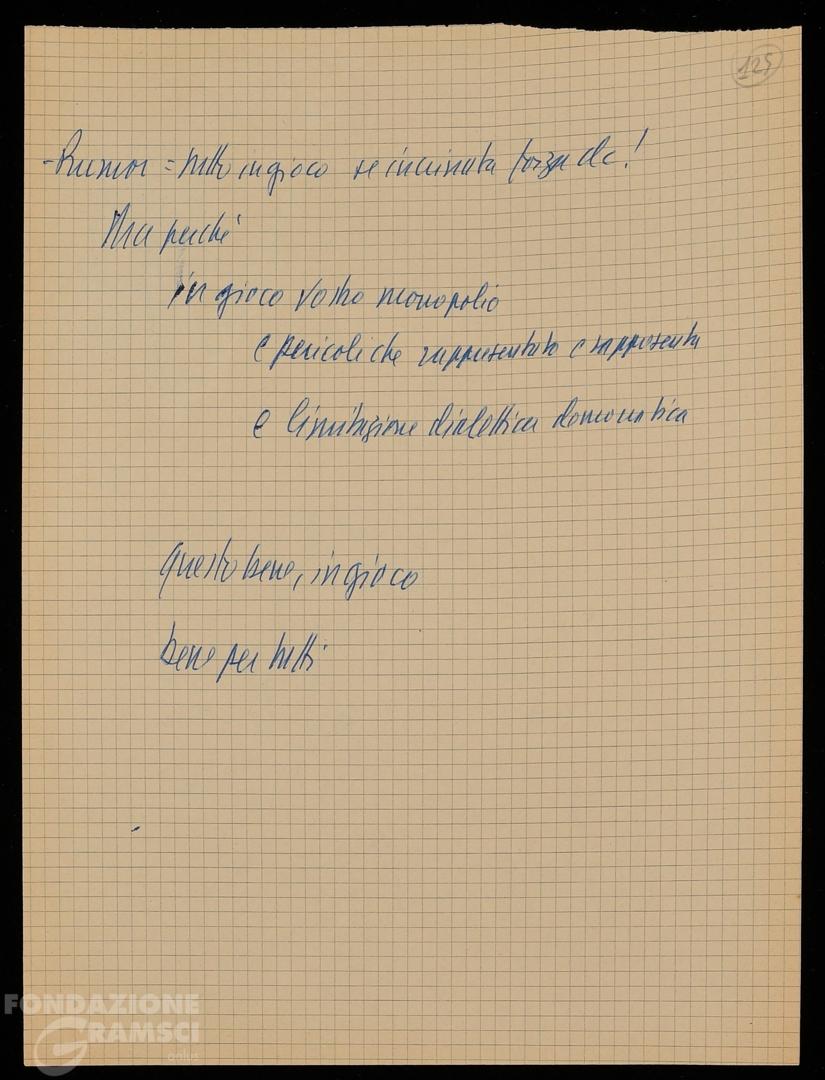 125
- Rumor = tutto in gioco se incrinata forza dc!
Ma perché
in gioco vostro monopolio
e pericoli che rappresentato e rappresenta
e limitazione dialettica democratica
Questo bene, in gioco
bene per tutti
FONDAZIONE
GRAMSCI
onlus